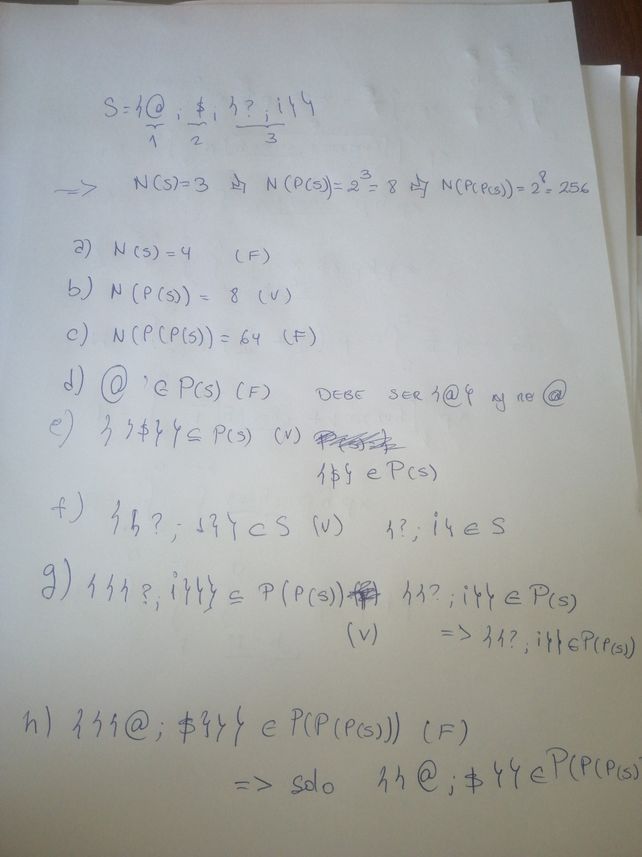 S={@ ; $ ; {? ; i}}
1 2 3
=> N(S)=3 ⇒ N(P(S))=2³=8 ⇒ N(P(P(S))=2⁸=256
a) N(S)=4 (F)
b) N(P(S)) = 8 (V)
c) N(P(P(S)) = 64 (F)
d) @ ∈ P(S) (F) DEBE SER {@} y no @
e) {{$}} ⊆ P(S) (V)
{$} ∈ P(S)
f) {{? ; i}} ⊂ S (V) {? ; i} ∈ S
g) {{{? ; i}}} ⊆ P(P(S)) {{? ; i}} ∈ P(S)
(V) => {{? ; i}} ∈ P(P(S))
h) {{{@ ; $}}} ∈ P(P(P(S))) (F)
=> solo {{@ ; $}} ∈ P(P(P(S)